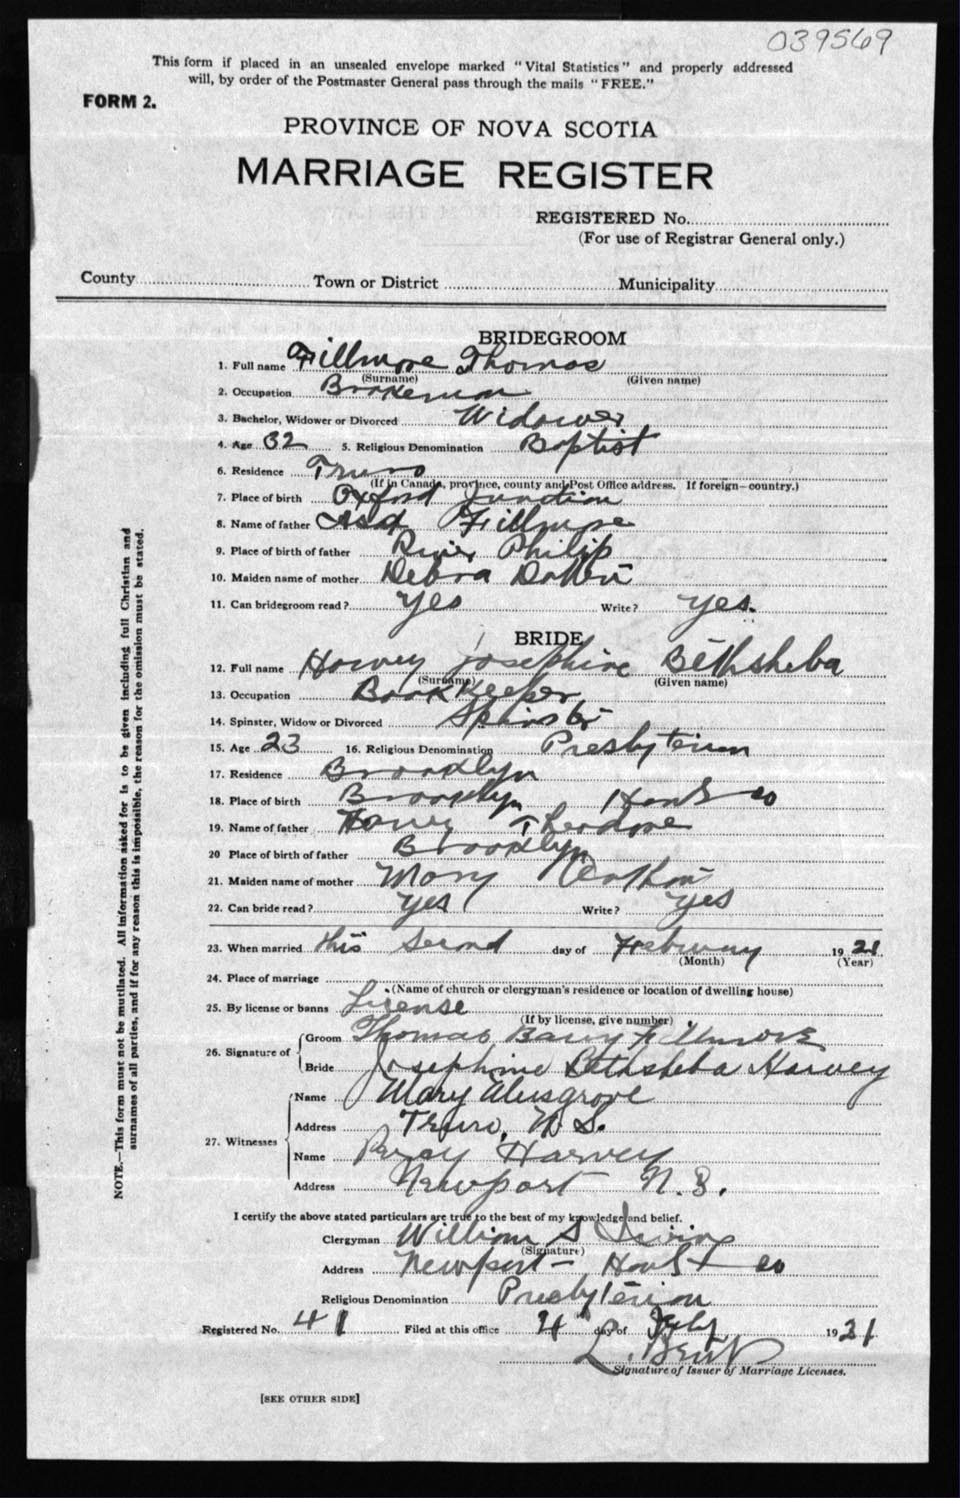 039569
This form if placed in an unsealed envelope marked "Vital Statistics" and properly addressed
will, by order of the Postmaster General pass through the mails "FREE."
FORM 2.
PROVINCE OF NOVA SCOTIA
MARRIAGE REGISTER
REGISTERED No.
(For use of Registrar General only.)
County Town or District Municipality
BRIDEGROOM
1. Full name Fillmore Thomas
(Surname) (Given name)
2. Occupation Brakeman
3. Bachelor, Widower or Divorced Widower
4. Age 32 5. Religious Denomination Baptist
6. Residence Truro
(If in Canada, province, county and Post Office address. If foreign—country.)
7. Place of birth Oxford Junction
8. Name of father Fillmore
9. Place of birth of father River Philip
10. Maiden name of mother Debra
11. Can bridegroom read? Yes Write? Yes.
BRIDE
12. Full name Harvey Josephine Bethsheba
(Surname) (Given name)
13. Occupation Bookkeeper
14. Spinster, Widow or Divorced Spinster
15. Age 23 16. Religious Denomination Presbyterian
17. Residence Brooklyn
18. Place of birth Brooklyn Hants Co
19. Name of father Harvey Theodore
20 Place of birth of father Brooklyn
21. Maiden name of mother Mary
22. Can bride read? Yes Write? Yes
23. When married this Second day of February 1921
(Month) (Year)
24. Place of marriage
(Name of church or clergyman's residence or location of dwelling house)
25. By license or banns License
(If by license, give number)
26. Signature of Groom Thomas Barry Fillmore
Bride Josephine Bethsheba Harvey
27. Witnesses Name Mary Musgrove
Address Truro, N. S.
Name Percy Harvey
Address Newport N.S.
I certify the above stated particulars are true to the best of my knowledge and belief.
Clergyman William S Irving
(Signature)
Address Newport — Hants Co
Religious Denomination Presbyterian
Registered No. 41 Filed at this office 4 day of July 1921
L. Bent
Signature of Issuer of Marriage Licenses.
[SEE OTHER SIDE]
NOTE.—This form must not be mutilated. All information asked for is to be given including full Christian and
surnames of all parties, and if for any reason this is impossible, the reason for the omission must be stated.